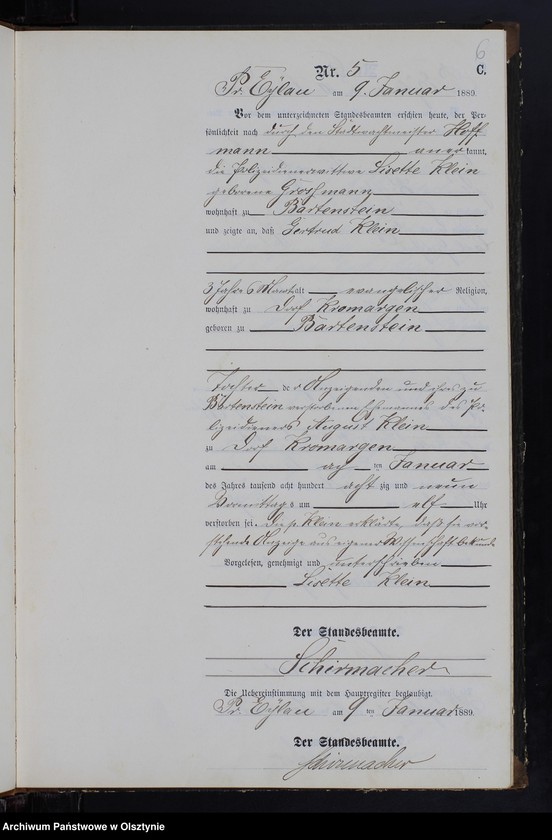 6
C.
Nr. 5
Pr. Eylau am 9. Januar 1889.
Vor dem unterzeichneten Standesbeamten erschien heute, der Per-
sönlichkeit nach durch den Stadtwachtmeister Hoff
mann anerkannt,
die Polizeidienerwittwe Lisette Klein
geborene Großmann
wohnhaft zu Bartenstein
und zeigte an, daß Gertrud Klein
3 Jahre 6 Monat alt evangelischer Religion,
wohnhaft zu Dorf Kromargen
geboren zu Bartenstein
Tochter der Anzeigenden und ihres zu
Bartenstein verstorbenen Ehemannes des Po-
lizeidieners August Klein
zu Dorf Kromargen
am acht ten Januar
des Jahres tausend acht hundert achtzig und neun
Vormittags um elf Uhr
verstorben sei. Die p. Klein erklärte, daß sie vor-
stehende Anzeige aus eigener Wissenschaft bekunde
Vorgelesen, genehmigt und unterschrieben
Lisette Klein
Der Standesbeamte.
Schirmacher
Die Uebereinstimmung mit dem Hauptregister beglaubigt.
Pr. Eylau am 9 ten Januar 1889.
Der Standesbeamte.
Schirmacher
Archiwum Państwowe w Olsztynie